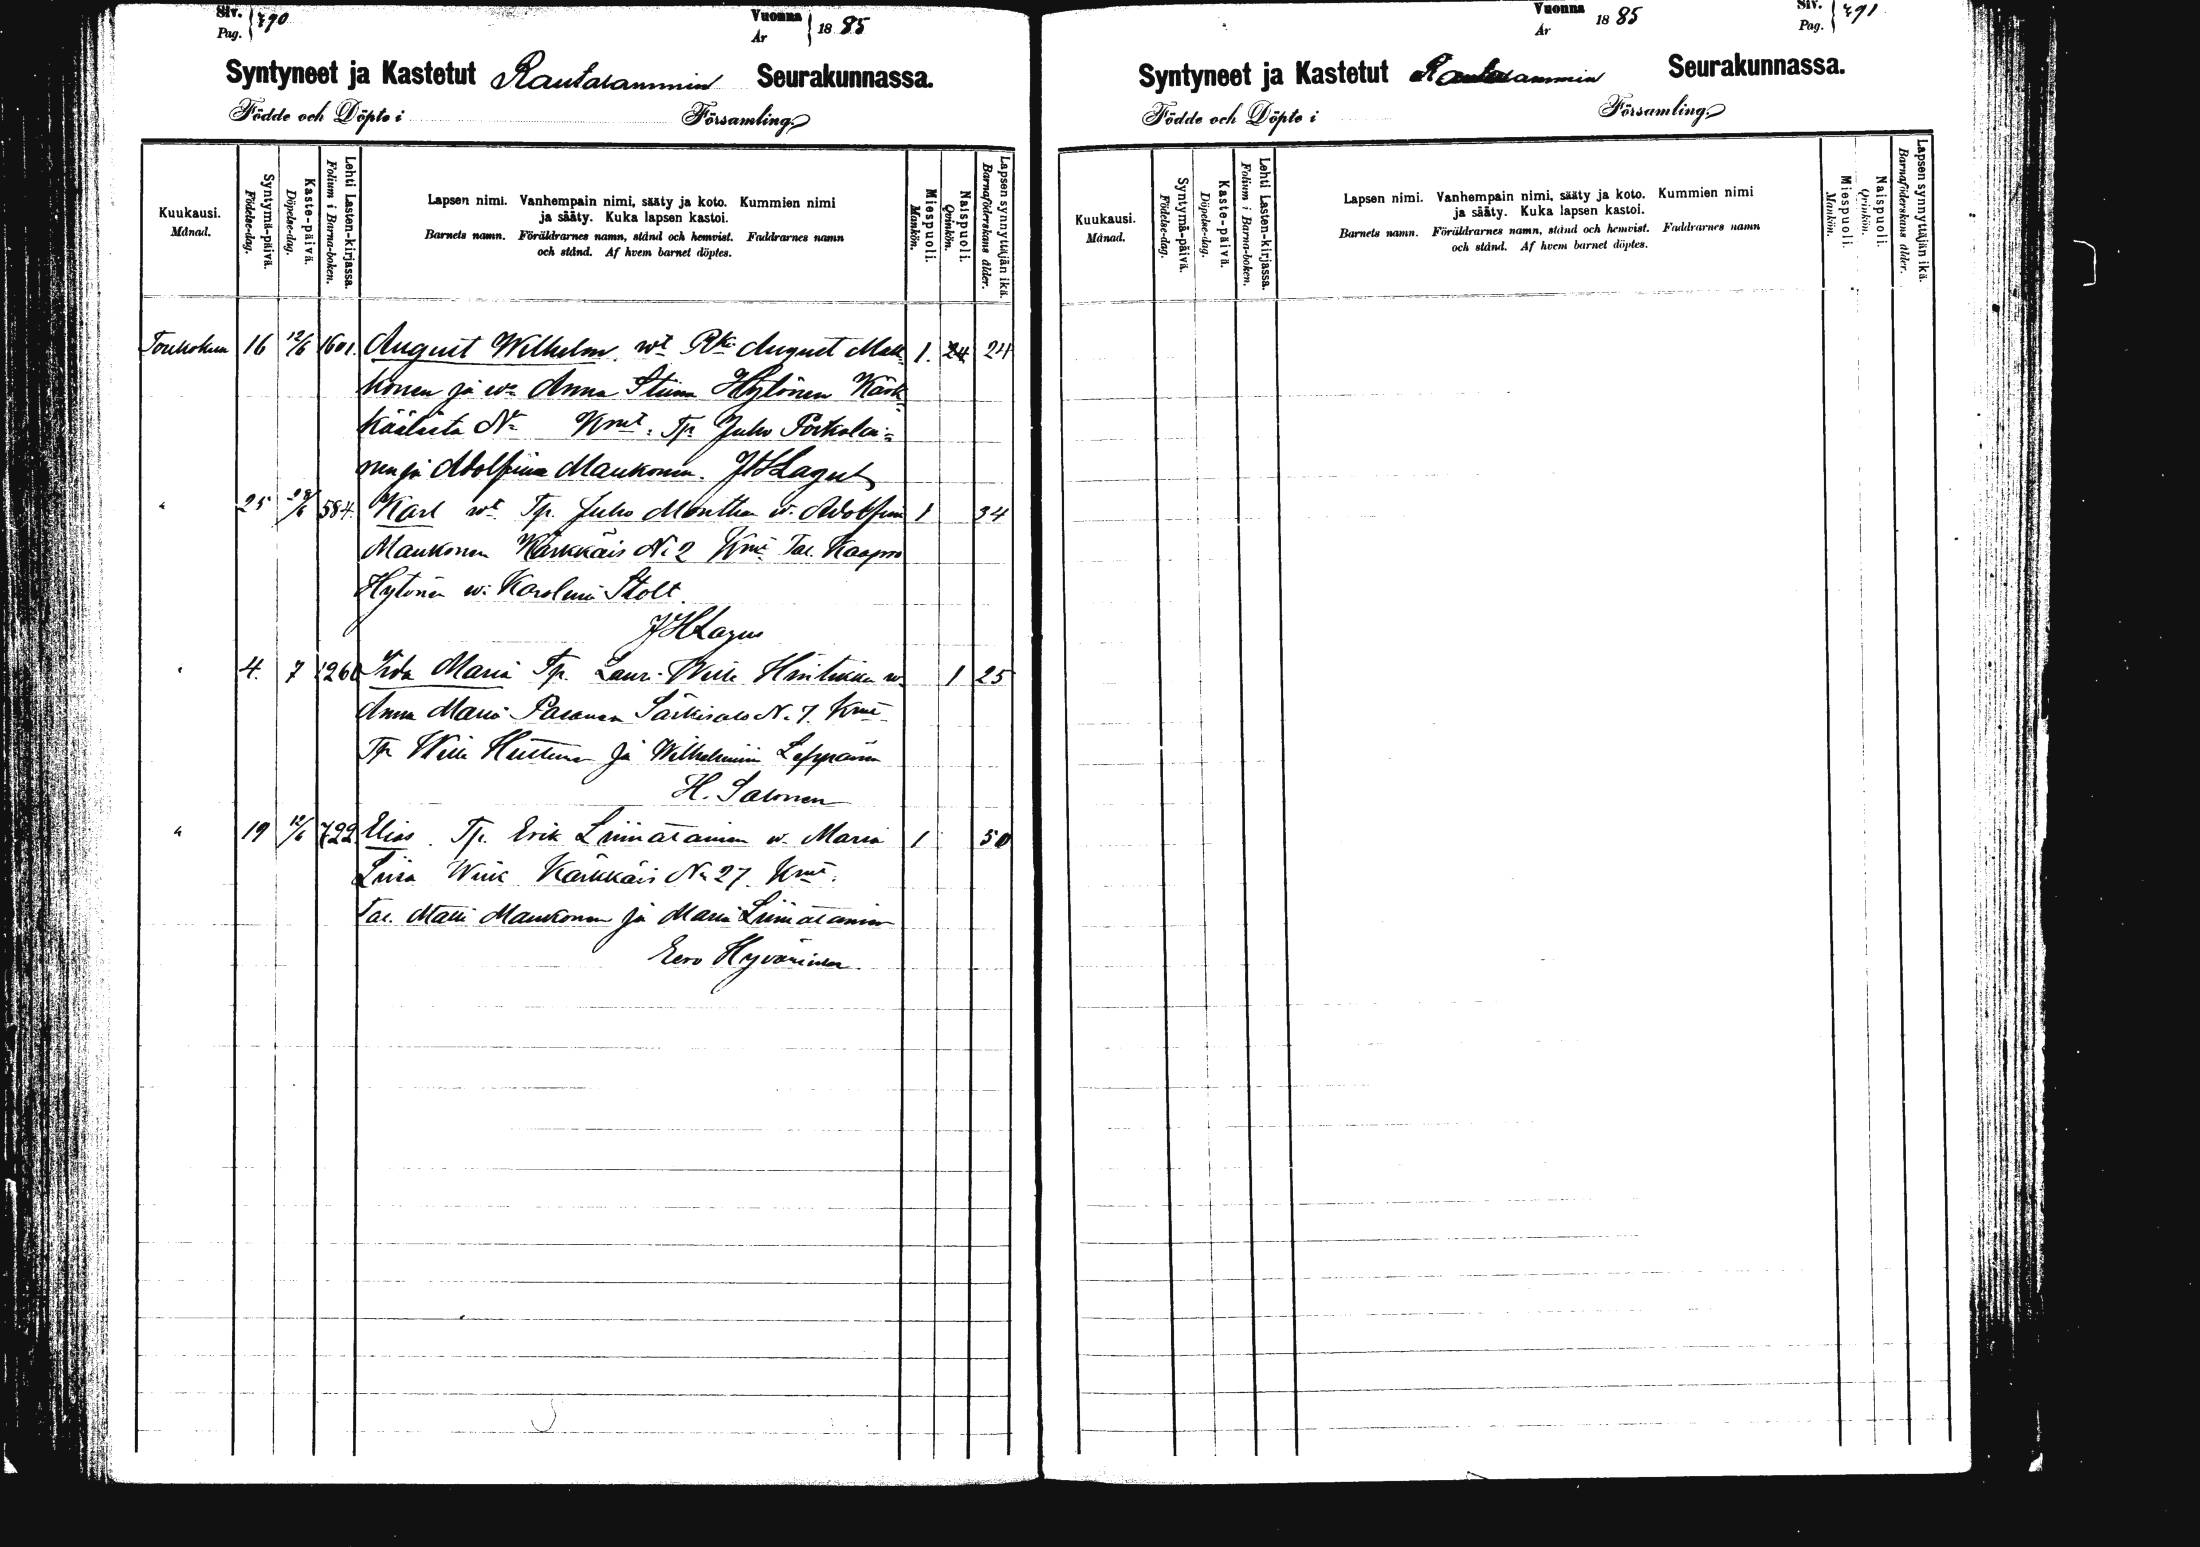 Siv. 790
Pag.
Vuonna 1885
År
Syntyneet ja Kastetut Rautalammin Seurakunnassa.
Födde och Döpte i Församling.
Kuukausi.
Månad.
Syntymä-päivä.
Födelse-dag.
Kaste-päivä.
Döpelse-dag.
Lehti Lasten-kirjassa.
Folium i Barna-boken.
Lapsen nimi. Vanhempain nimi, sääty ja koto. Kummien nimi
ja sääty. Kuka lapsen kastoi.
Barnets namn. Föräldrarnes namn, stånd och hemvist. Faddrarnes namn
och stånd. Af hvem barnet döptes.
Miespuoli.
Mankön.
Naispuoli.
Qvinkön.
Lapsen synnyttäjän ikä.
Barnaföderskans ålder.
Toukokuu 16 12/6 1601. August Wilhelm. wt August 1. 24 24
ja wo Anna Stiina Hytönen
No Kmt. Tp. Juho
ja Adolfiina Maukonen. J H Lagus
" 25 28/6 584. Karl wt Tp. Juho w. Adolfiina 1 34
Maukonen Kärkkäis No 2 Kmt Tal. Kaapro
Hytönen w: Karolina Stolt.
J H Lagus
" 4. 7 1260 Iida Maria Tp. Lauri Wille Hintikka w. 1 25
Anna Maria Särkisalo No 7. Kmt
Tp Wille ja Wilhelmiina Leppänen
H. Salonen
" 19 12/6 722. Elias. Tp. Erik Liimatainen w. Maria 1 50
Liisa Wiik Kärkkäis No 27. Kmt.
Tal. Matti Maukonen ja Maria Liimatainen
Eero Hyvärinen
Siv. 791
Pag.
Vuonna 1885
År
Syntyneet ja Kastetut Rautalammin Seurakunnassa.
Födde och Döpte i Församling.
Kuukausi.
Månad.
Syntymä-päivä.
Födelse-dag.
Kaste-päivä.
Döpelse-dag.
Lehti Lasten-kirjassa.
Folium i Barna-boken.
Lapsen nimi. Vanhempain nimi, sääty ja koto. Kummien nimi
ja sääty. Kuka lapsen kastoi.
Barnets namn. Föräldrarnes namn, stånd och hemvist. Faddrarnes namn
och stånd. Af hvem barnet döptes.
Miespuoli.
Mankön.
Naispuoli.
Qvinkön.
Lapsen synnyttäjän ikä.
Barnaföderskans ålder.